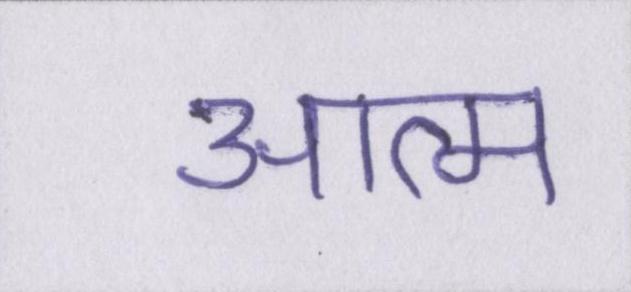 आत्म